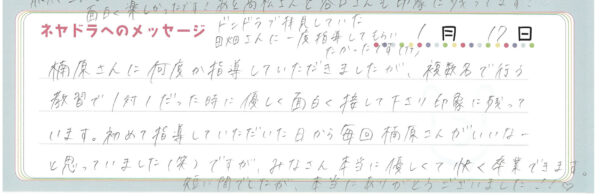 面白く楽しかったです! あと高松さんと谷口さんも印象に残ってます!
ネヤドラへのメッセージ
ドンドラで拝見していた
田畑さんに一度指導してもらい
たかったです(汗)
1月 17日
楠原さんに何度か指導していただきましたが、複数名で行う
教習で1対1だった時に優しく面白く接して下さり印象に残って
います。初めて指導していただいた日から毎回楠原さんがいいなー
と思っていました(笑)ですが、みなさん本当に優しくて快く卒業できます。
短い間でしたが、本当にありがとうございました!!♡